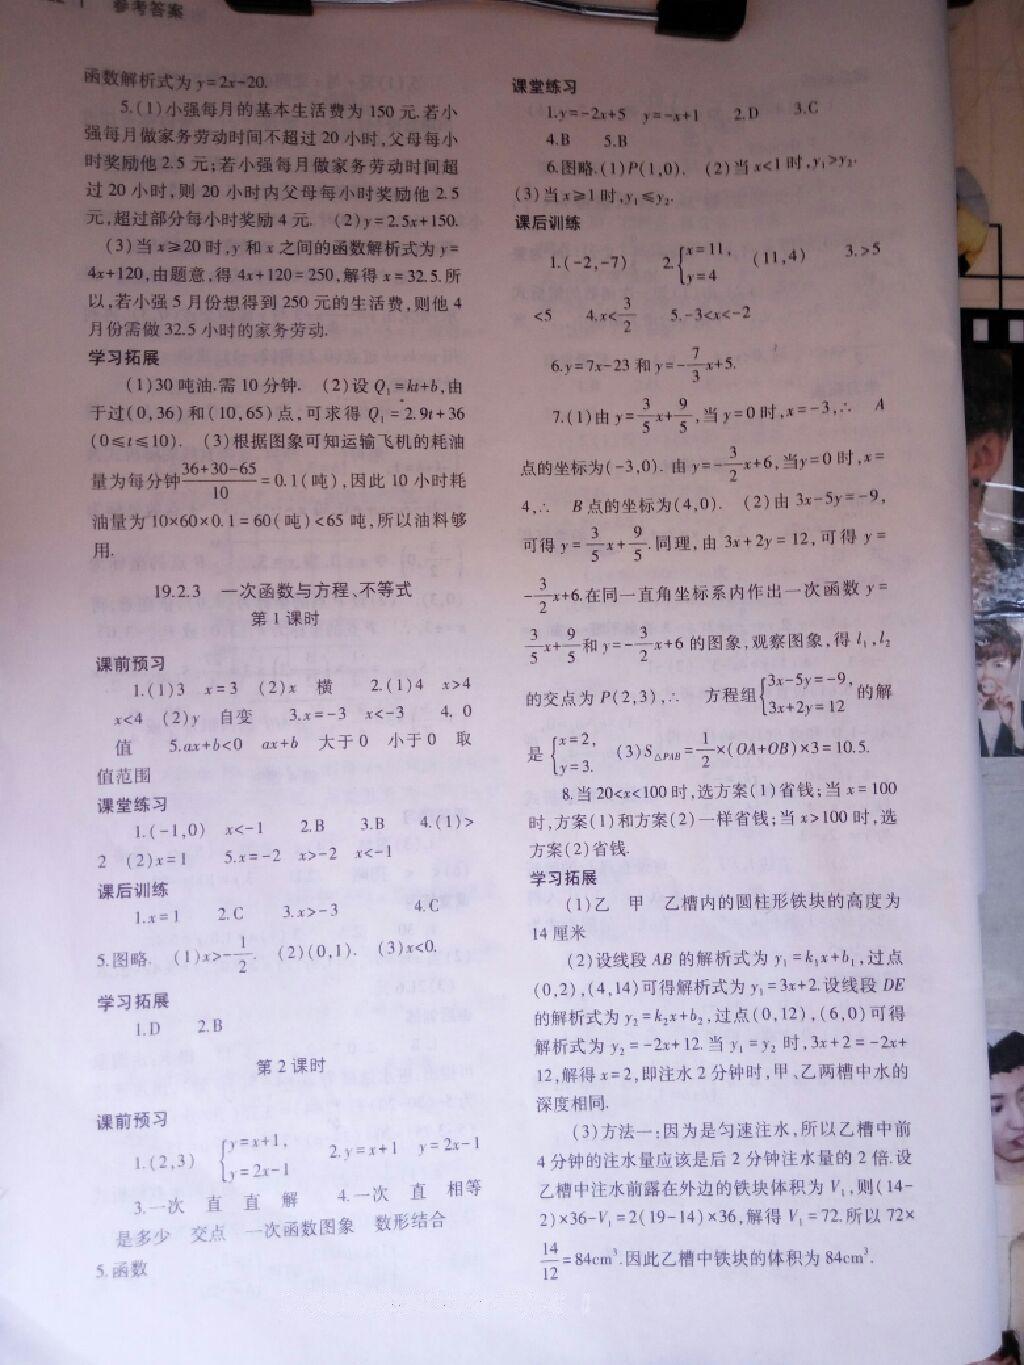 参考答案
函数解析式为 y=2x-20.
5.(1)小强每月的基本生活费为 150 元.若小
强每月做家务劳动时间不超过 20 小时,父母每小
时奖励他 2.5 元;若小强每月做家务劳动时间超
过 20 小时,则 20 小时内父母每小时奖励他 2.5
元,超过部分每小时奖励 4 元. (2)y=2.5x+150.
(3)当 x≥20 时,y 和 x 之间的函数解析式为 y=
4x+120,由题意,得 4x+120=250,解得 x=32.5.所
以,若小强 5 月份想得到 250 元的生活费,则他 4
月份需做 32.5 小时的家务劳动.
学习拓展
(1)30 吨油.需 10 分钟. (2)设 Q₁=kt+b,由
于过(0,36)和(10,65)点,可求得 Q₁=2.9t+36
(0≤t≤10). (3)根据图象可知运输飞机的耗油
量为每分钟 36+30-65/10 =0.1(吨),因此 10 小时耗
油量为 10×60×0.1=60(吨)<65 吨,所以油料够
用.
19.2.3 一次函数与方程、不等式
第 1 课时
课前预习
1.(1)3 x=3 (2)x 横 2.(1)4 x>4
x<4 (2)y 自变 3.x=-3 x<-3 4. 0
值 5.ax+b<0 ax+b 大于 0 小于 0 取
值范围
课堂练习
1.(-1,0) x<-1 2.B 3.B 4.(1)>
2 (2)x=1 5.x=-2 x>-2 x<-1
课后训练
1.x=1 2.C 3.x>-3 4.C
5.图略. (1)x>-1/2. (2)(0,1). (3)x<0.
学习拓展
1.D 2.B
第 2 课时
课前预习
1.(2,3) {y=x+1, y=2x-1 2.y=x+1 y=2x-1
3.一次 直 直 解 4.一次 直 相等
是多少 交点 一次函数图象 数形结合
5.函数
课堂练习
1.y=-2x+5 y=-x+1 2.D 3.C
4.B 5.B
6.图略.(1)P(1,0). (2)当 x<1 时,y₁>y₂.
(3)当 x≥1 时,y₁≤y₂.
课后训练
1.(-2,-7) 2.{x=11, y=4 (11,4) 3.>5
<5 4.x<3/2 5.-3<x<-2
6.y=7x-23 和 y=-7/3x+5.
7.(1)由 y=3/5x+9/5,当 y=0 时,x=-3,∴ A
点的坐标为(-3,0). 由 y=-3/2x+6,当y=0 时,x=
4,∴ B 点的坐标为(4,0). (2)由 3x-5y=-9,
可得 y=3/5x+9/5.同理,由 3x+2y=12,可得 y=
-3/2x+6.在同一直角坐标系内作出一次函数 y=
3/5x+9/5和 y=-3/2x+6 的图象,观察图象,得 l₁,l₂
的交点为 P(2,3),∴ 方程组{3x-5y=-9, 3x+2y=12 的解
是 {x=2, y=3. (3)S△PAB=1/2×(OA+OB)×3=10.5.
8.当 20<x<100 时,选方案(1)省钱;当 x=100
时,方案(1)和方案(2)一样省钱;当 x>100 时,选
方案(2)省钱.
学习拓展
(1)乙 甲 乙槽内的圆柱形铁块的高度为
14 厘米
(2)设线段 AB 的解析式为 y₁=k₁x+b₁,过点
(0,2),(4,14)可得解析式为 y₁=3x+2.设线段 DE
的解析式为 y₂=k₂x+b₂,过点(0,12),(6,0)可得
解析式为 y₂=-2x+12.当 y₁=y₂ 时,3x+2=-2x+
12,解得 x=2,即注水 2 分钟时,甲、乙两槽中水的
深度相同.
(3)方法一:因为是匀速注水,所以乙槽中前
4 分钟的注水量应该是后 2 分钟注水量的 2 倍.设
乙槽中注水前露在外边的铁块体积为 V₁,则(14-
2)×36-V₁=2(19-14)×36,解得 V₁=72.所以 72×
14/12=84cm³.因此乙槽中铁块的体积为 84cm³.